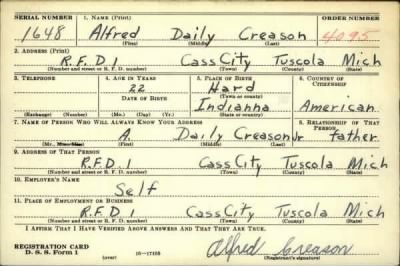 SERIAL NUMBER 1. NAME (Print) ORDER NUMBER
1648 Alfred Daily Creason 4095
(First) (Middle) (Last)
2. ADDRESS (Print)
R.F.D 1 Cass City Tuscola Mich
(Number and street or R. F. D. number) (Town) (County) (State)
3. TELEPHONE 4. AGE IN YEARS 5. PLACE OF BIRTH 6. COUNTRY OF CITIZENSHIP
22 Hard
DATE OF BIRTH (Town or county)
Indianna American
(Exchange) (Number) (Mo.) (Day) (Yr.) (State or country)
7. NAME OF PERSON WHO WILL ALWAYS KNOW YOUR ADDRESS 8. RELATIONSHIP OF THAT PERSON
A. Daily Creason Jr father
(Mr., Mrs., Miss) (First) (Middle) (Last)
9. ADDRESS OF THAT PERSON
R.F.D. 1 Cass City Tuscola Mich
(Number and street or R. F. D. number) (Town) (County) (State)
10. EMPLOYER'S NAME
Self
11. PLACE OF EMPLOYMENT OR BUSINESS
R.F.D 1 Cass City Tuscola Mich
(Number and street or R. F. D. number) (Town) (County) (State)
I AFFIRM THAT I HAVE VERIFIED ABOVE ANSWERS AND THAT THEY ARE TRUE.
REGISTRATION CARD
D. S. S. Form 1 (over) 16—17105 Alfred Creason
(Registrant's signature)